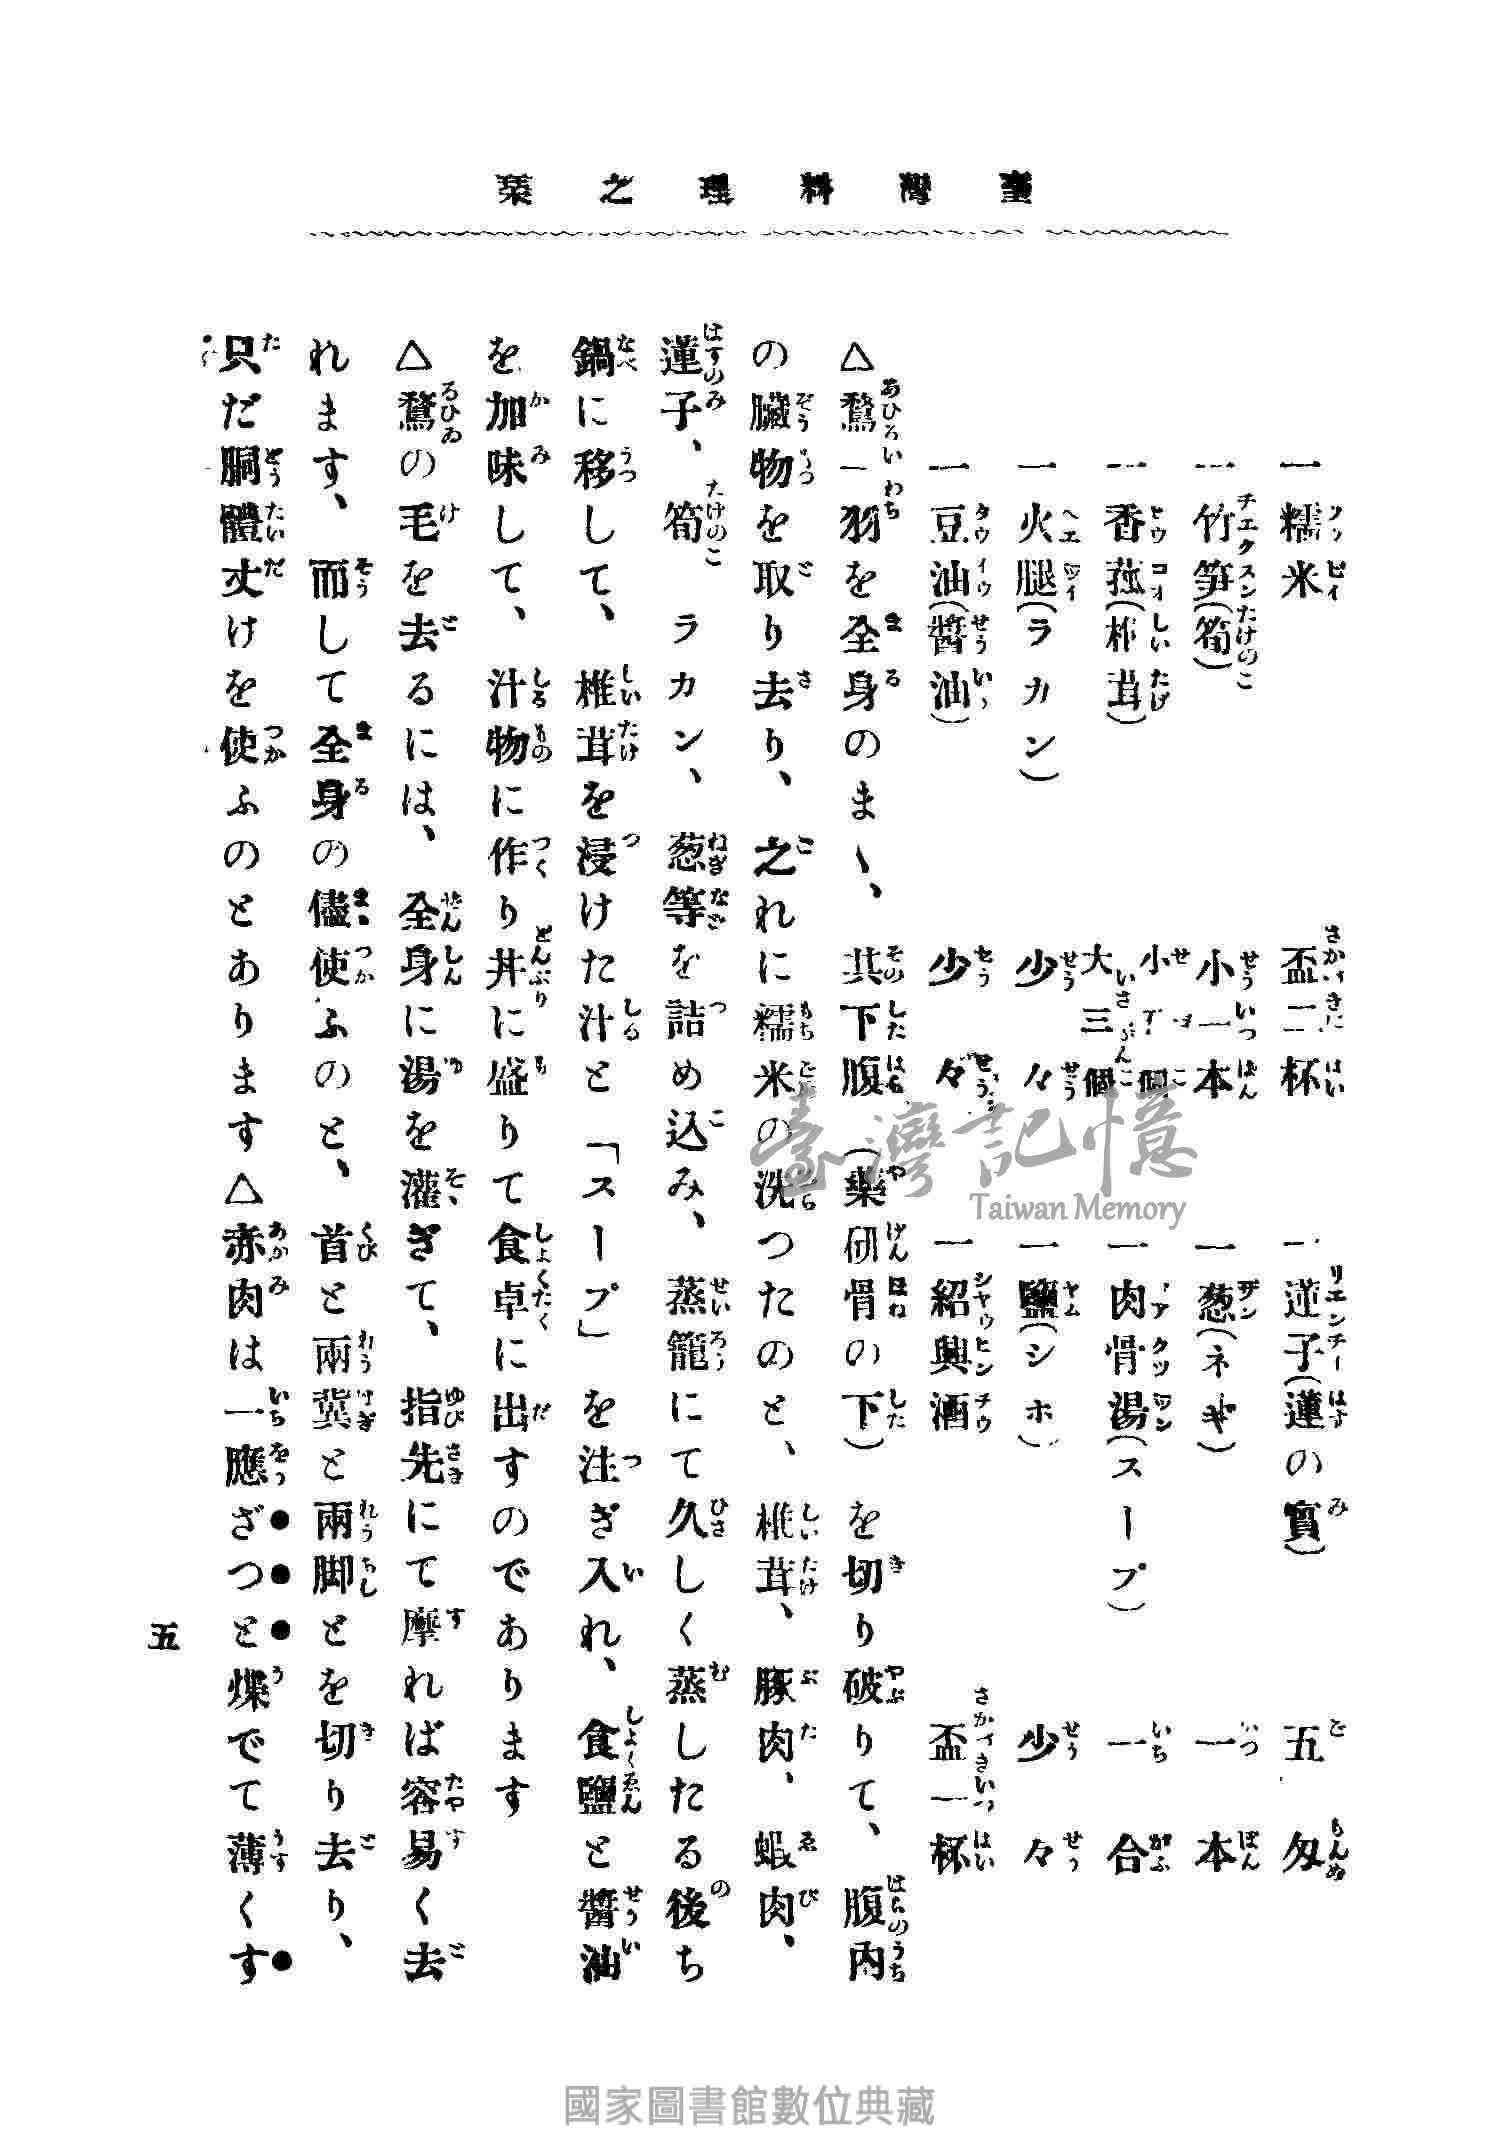 臺灣料理之栞
一糯米 盃二杯 一蓮子(蓮の實) 五匁
一竹笋(筍) 小一本 一葱(ネギ) 一本
一香菰(椎茸) 小 個 大三個 一肉骨湯(スープ) 一合
一火腿(ラカン) 少々 一鹽(シホ) 少々
一豆油(醬油) 少々 一紹興酒 盃一杯
△鶩一羽を全身のまゝ、其下腹(藥研骨の下)を切り破りて、腹內
の臟物を取り去り、之れに糯米の洗つたのと、椎茸、豚肉、蝦肉、
蓮子、筍 ラカン、葱等を詰め込み、蒸籠にて久しく蒸したる後ち
鍋に移して、椎茸を浸けた汁と「スープ」を注ぎ入れ、食鹽と醬油
を加味して、汁物に作り丼に盛りて食卓に出すのであります
△鶩の毛を去るには、全身に湯を灌ぎて、指先にて摩れば容易く去
れます、而して全身の儘使ふのと、首と兩翼と兩脚とを切り去り、
只だ胴體丈けを使ふのとあります△赤肉は一應ざつと煠でて薄くす
五
臺灣記憶
Taiwan Memory
國家圖書館數位典藏